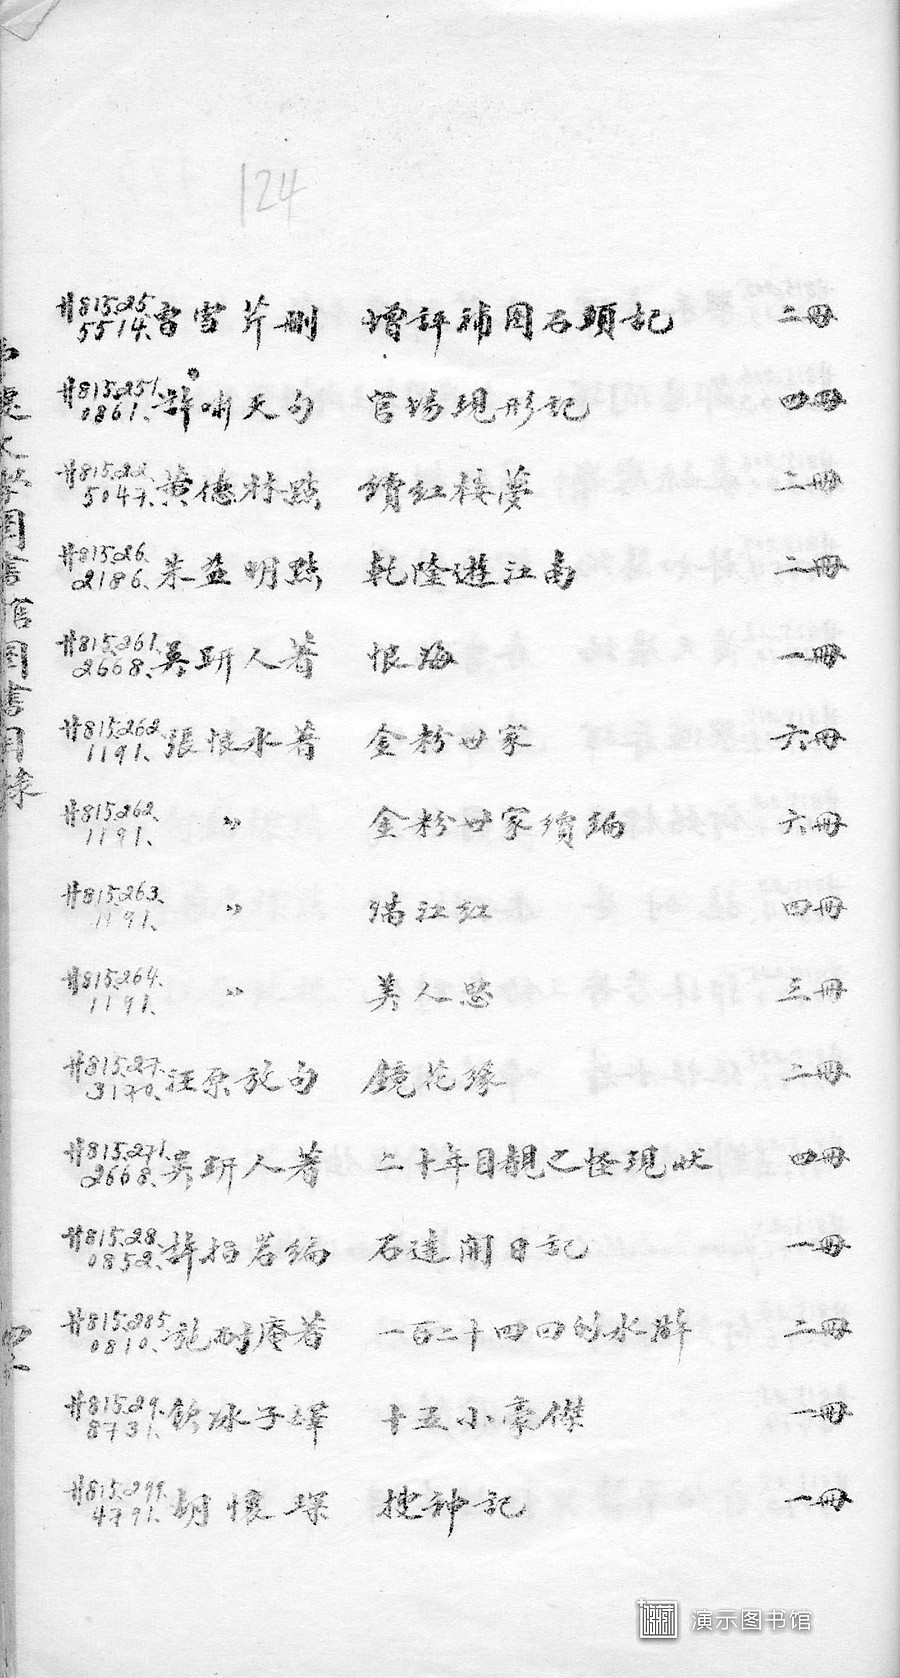 124
廿815.25 5514. 曹雪芹刪 增評補图石頭記 二冊
廿815.251. 0861. 許嘯天句 官場現形記 四冊
廿815.22. 5047. 黄德林點 續紅楼夢 三冊
廿815.26. 2186. 朱益明點 乾隆遊江南 二冊
廿815.261. 2668. 吳趼人著 恨海 一冊
廿815.262 1191. 張恨水著 金粉世家 六冊
廿815.262. 1191. 〃 金粉世家續編 六冊
廿815.263. 1191. 〃 满江红 四冊
廿815.264. 1191. 〃 美人恩 三冊
廿815.27. 3170. 汪原放句 鏡花緣 二冊
廿815.271. 2668. 吳趼人著 二十年目覩之怪現狀 四冊
廿815.28. 0852. 許指岩編 石達開日記 一冊
廿815.285 0810. 施耐庵著 一百二十四回的水滸 二冊
廿815.29. 8731. 飲冰子譯 十五小豪傑 一冊
廿815.299. 4791. 胡懷琛 搜神記 一冊
大学图書館图書目錄
演示图书馆